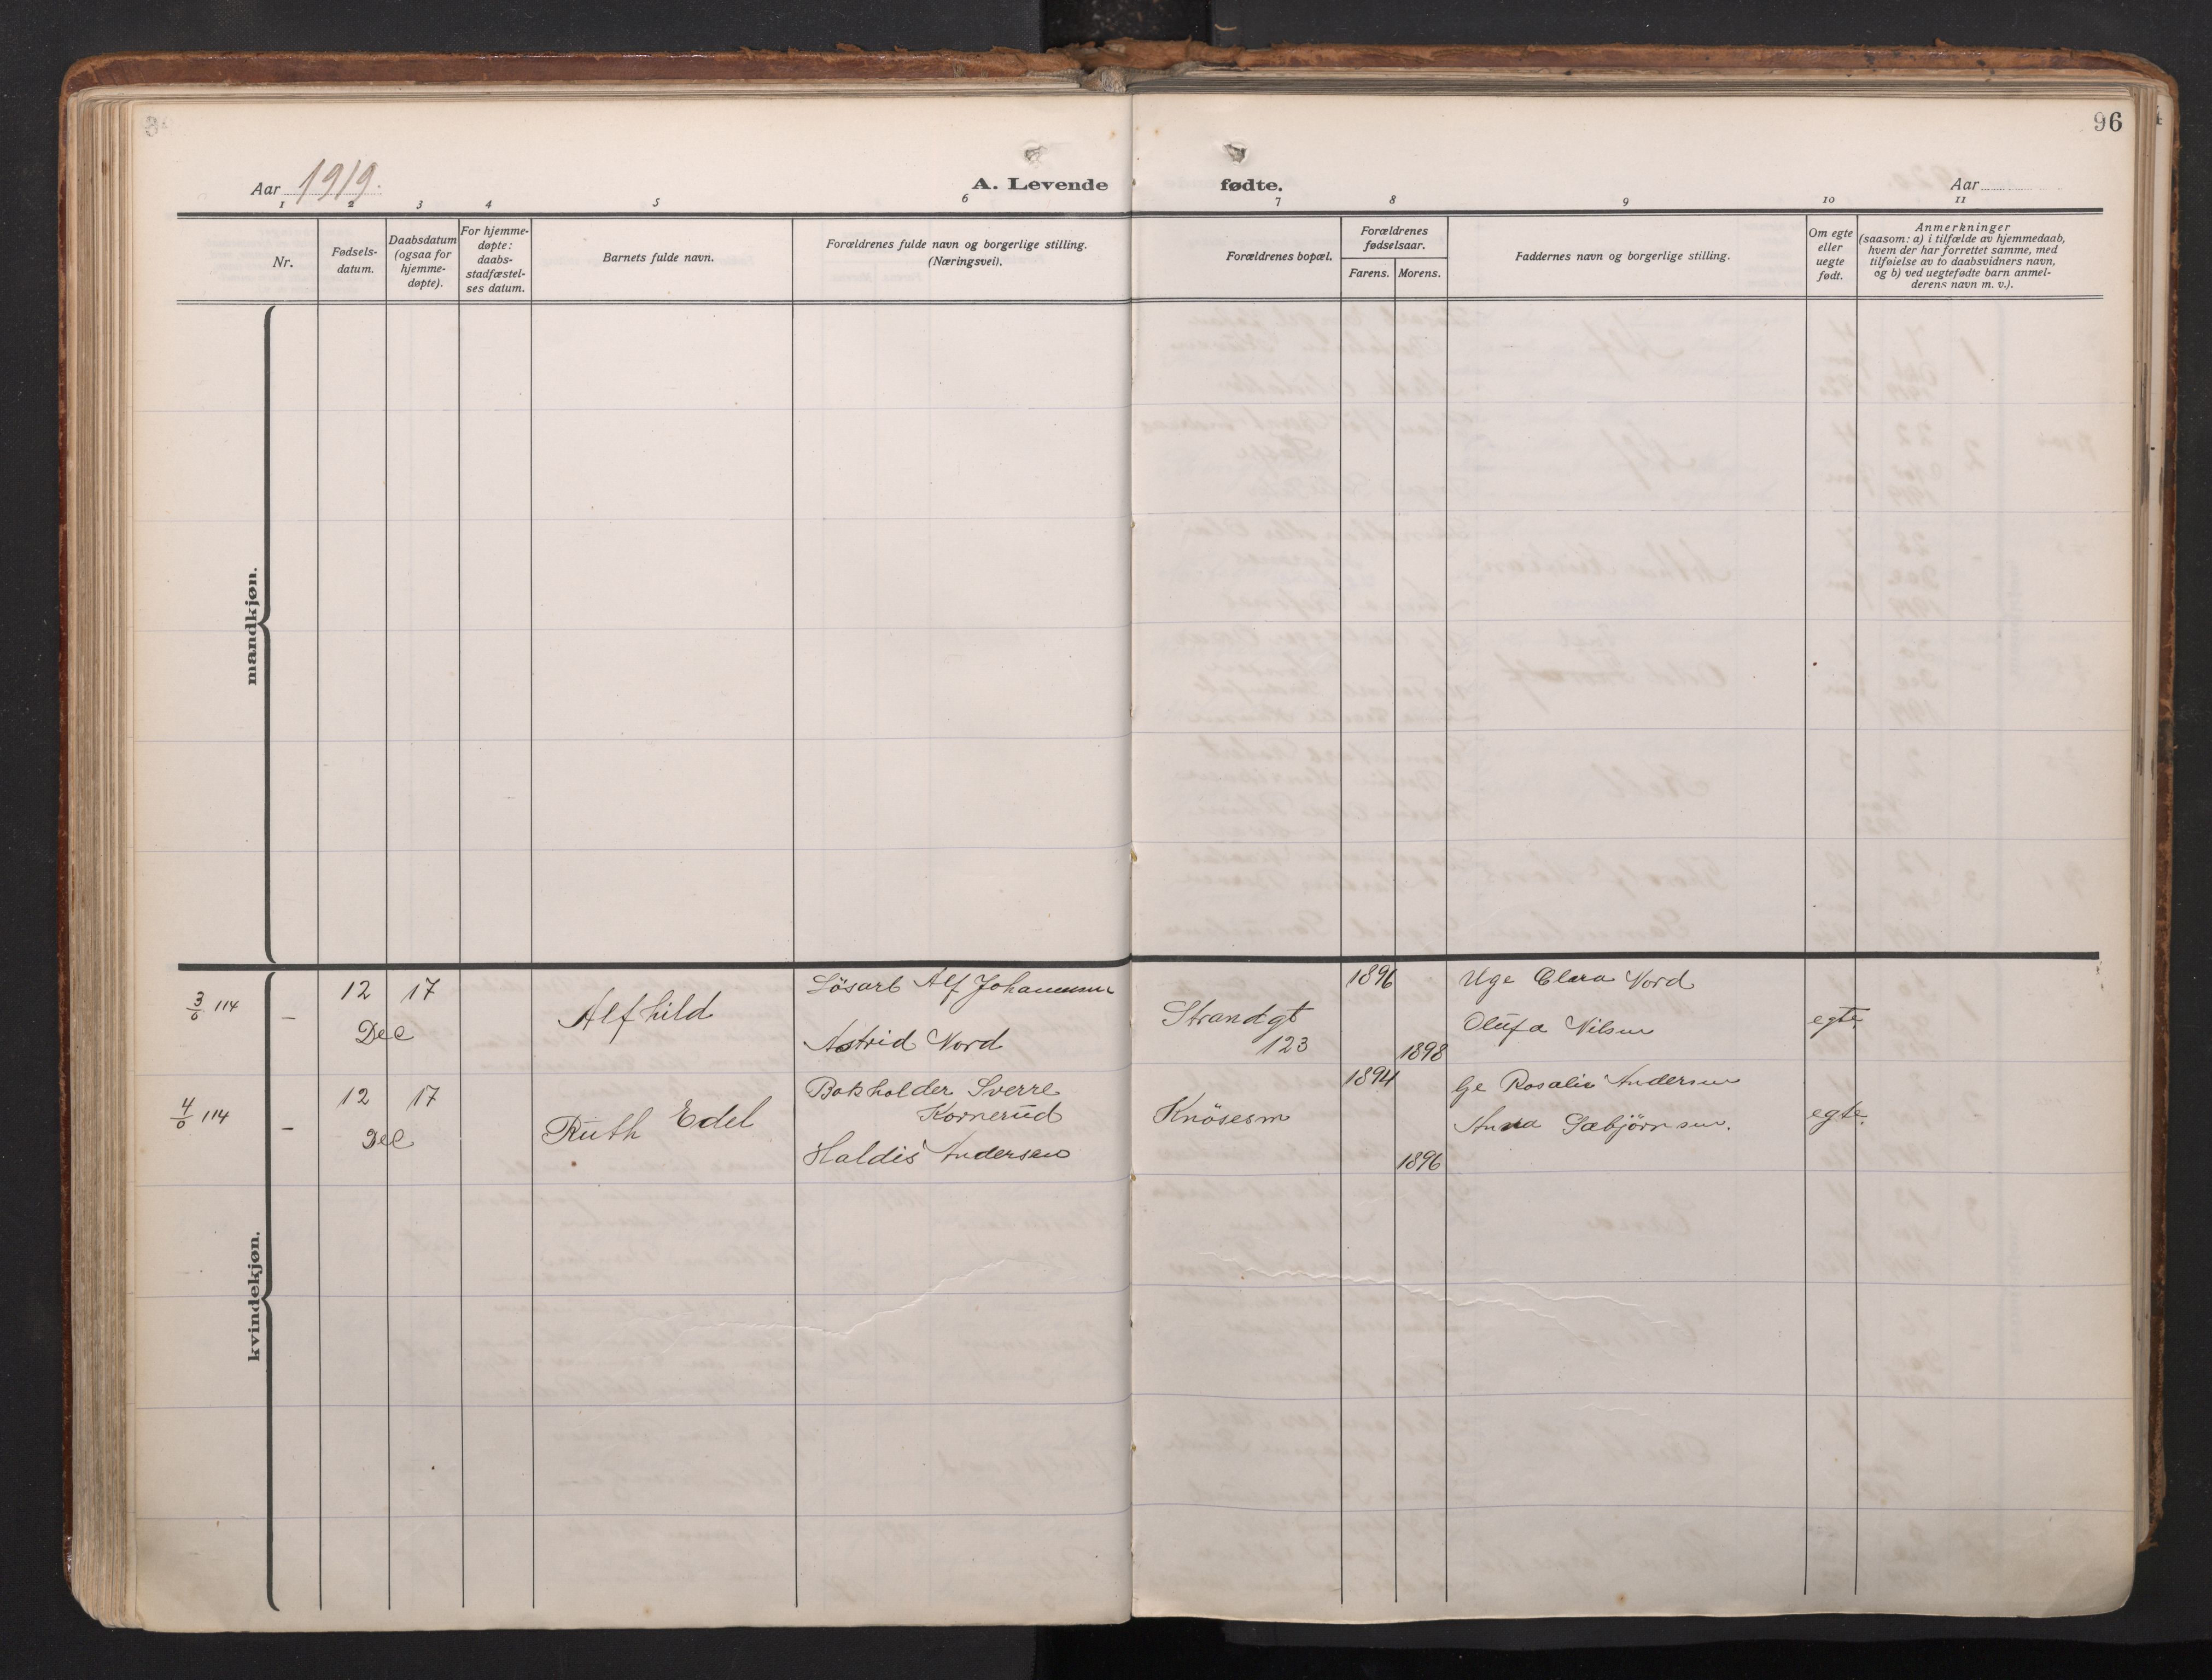 96
Aar 1919.
A. Levende fødte.
Aar
1 2 3 4 5 6 7 8 9 10 11
Nr.
Fødsels-
datum.
Daabsdatum
(ogsaa for
hjemme-
døpte).
For hjemme-
døpte:
daabs-
stadfæstel-
ses datum.
Barnets fulde navn.
Forældrenes fulde navn og borgerlige stilling.
(Næringsvei).
Forældrenes bopæl.
Forældrenes
fødselsaar.
Farens. Morens.
Faddernes navn og borgerlige stilling.
Om egte
eller
uegte
født.
Anmerkninger
(saasom: a) i tilfælde av hjemmedaab,
hvem der har forrettet samme, med
tilføielse av to daabsvidners navn,
og b) ved uegtefødte barn anmel-
derens navn m. v.).
mandkjøn.
kvindekjøn.
3/0 114
–
12 17
Dec
Alfhild
Løsarb Alf Johannesen
Astrid Nord
Strandgt
123
1896
1898
Uge Clara Nord
Olufa Nilsen
egte
4/0 114
–
12 17
Dec
Ruth Edel
Bokholder Sverre
Kornerud
Haldis Andersen
Knösesm
1894
1896
Ge Rosalie Andersen
Anna Sæbjørnsen.
egte.